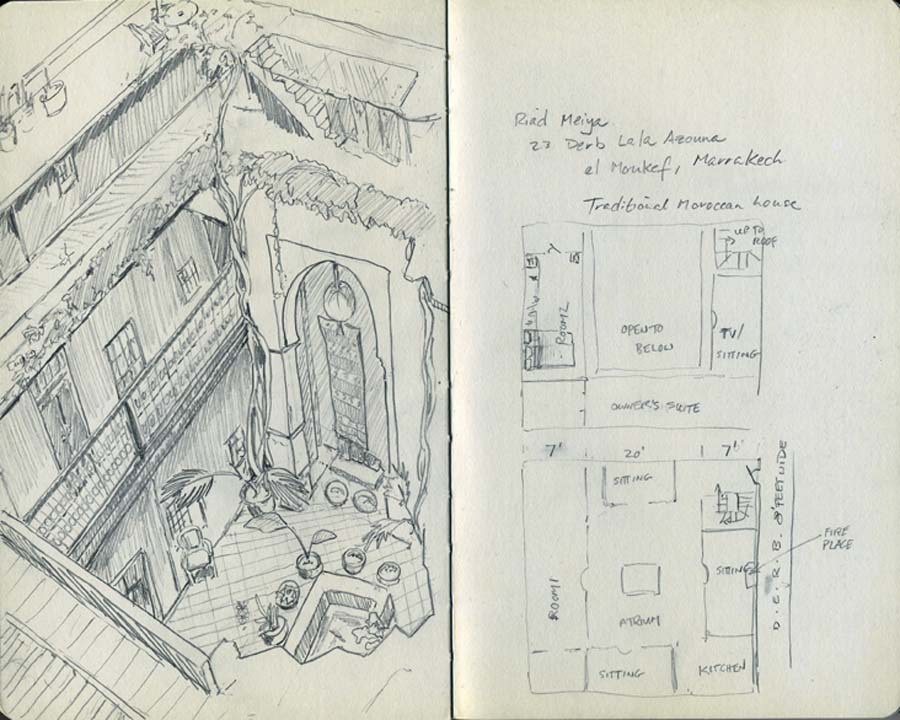 Riad Meiya
23 Derb Lala Azouna
el Moukef, Marrakech
Traditional Moroccan house
UP TO
ROOF
ROOM 2
OPEN TO
BELOW
TV/
SITTING
OWNER'S SUITE
7' 20' 7'
SITTING
ROOM 1
ATRIUM
SITTING
FIRE
PLACE
D.E.R.B. 8 FEET WIDE
SITTING
KITCHEN